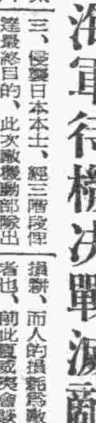 海軍待機決戰滅敵
三、侵襲日本本土、經三階段俾
達最終目的、此次敵機動部隊出
損耗、而人的損耗為敵
者也、前此夏威夷會談